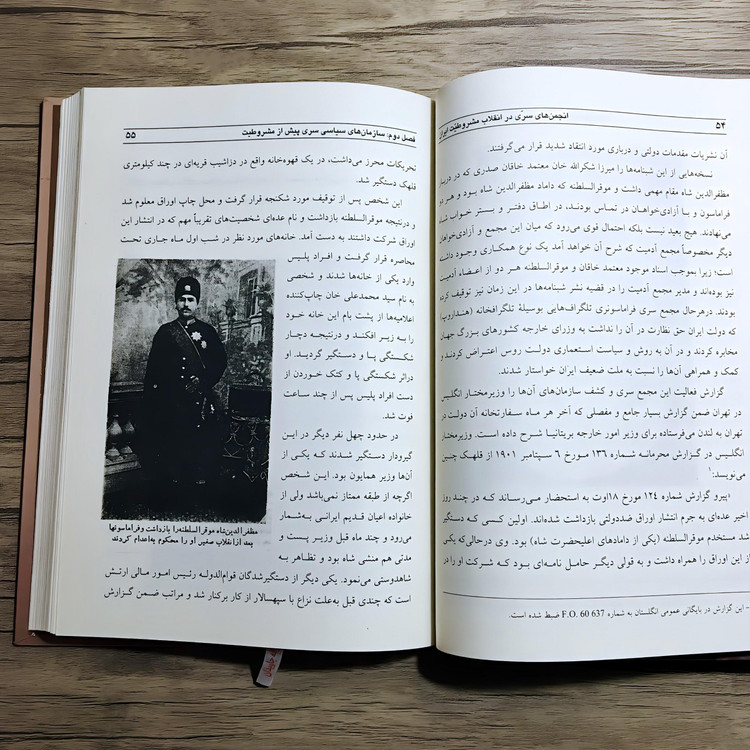 ۵۴
انجمن‌های سری در انقلاب مشروطیت ایران
آن نشریات مقدمات دولتی و درباری مورد انتقاد شدید قرار می‌گرفتند.
نسخه‌هایی از این شبنامه‌ها را میرزا شکرالله خان معتمد خاقان صدری که در دربار
مظفرالدین شاه مقام مهمی داشت و موقرالسلطنه که داماد مظفرالدین شاه بود و هر دو
فراماسون و با آزادی‌خواهان در تماس بودند، در اطاق دفتر و بستر خواب شاه
می‌نهادند. هیچ بعید نیست بلکه احتمال قوی می‌رود که میان این مجمع و آزادی‌خواهان
دیگر مخصوصاً مجمع آدمیت که شرح آن خواهد آمد یک نوع همکاری وجود داشت
است؛ زیرا بموجب اسناد موجود معتمد خاقان و موقرالسلطنه هر دو از اعضاء آدمیت
نیز بوده‌اند و مدیر مجمع آدمیت را در قضیه نشر شبنامه‌ها در این زمان نیز توقیف کرده
بودند. درهرحال مجمع سری فراماسونری تلگراف‌هایی بوسیلهٔ تلگرافخانه (هنداروپ)
که دولت ایران حق نظارت در آن را نداشت به وزرای خارجه کشورهای بزرگ جهان
مخابره کردند و در آن به روش و سیاست استعماری دولت روس اعتراض کردند و
کمک و همراهی آن‌ها را نسبت به ملت ضعیف ایران خواستار شدند.
گزارش فعالیت این مجمع سری و کشف سازمان‌های آن‌ها را وزیرمختار انگلیس
در تهران ضمن گزارش بسیار جامع و مفصلی که آخر هر ماه سفارتخانه آن دولت در
تهران به لندن می‌فرستاده برای وزیر امور خارجه بریتانیا شرح داده است. وزیرمختار
انگلیس در گزارش محرمانه شماره ۱۳۶ مورخ ۶ سپتامبر ۱۹۰۱ از قلهک چنین
می‌نویسد:۱
«پیرو گزارش شماره ۱۲۴ مورخ ۱۸اوت به استحضار می‌رساند که در چند روز
اخیر عده‌ای به جرم انتشار اوراق ضددولتی بازداشت شده‌اند. اولین کسی که دستگیر
شد مستخدم موقرالسلطنه (یکی از دامادهای اعلیحضرت شاه) بود. وی درحالی‌که یکی
از این اوراق را همراه داشت و به قولی دیگر حامل نامه‌ای بود که شرکت او را در
- این گزارش در بایگانی عمومی انگلستان به شماره F.O. 60 637 ضبط شده است.
فصل دوم: سازمان‌های سیاسی سری پیش از مشروطیت
۵۵
تحریکات محرز می‌داشت، در یک قهوه‌خانه واقع در دزاشیب قریه‌ای در چند کیلومتری
قلهک دستگیر شد.
این شخص پس از توقیف مورد شکنجه قرار گرفت و محل چاپ اوراق معلوم شد
و درنتیجه موقرالسلطنه بازداشت و نام عده‌ای شخصیت‌های تقریباً مهم که در انتشار این
اوراق شرکت داشتند به دست آمد. خانه‌های مورد نظر در شب اول ماه جاری تحت
محاصره قرار گرفت و افراد پلیس
وارد یکی از خانه‌ها شدند و شخصی
به نام سید محمدعلی خان چاپ‌کننده
اعلامیه‌ها از پشت بام این خانه خود
را به زیر افکند و درنتیجه دچار
شکستگی پا و دستگیر گردید. او
دراثر شکستگی پا و کتک خوردن از
دست افراد پلیس پس از چند ساعت
فوت شد.
در حدود چهل نفر دیگر در این
گیرودار دستگیر شدند که یکی از
آن‌ها وزیر همایون بود. این شخص
اگرچه از طبقه ممتاز نمی‌باشد ولی از
خانواده اعیان قدیم ایرانی به‌شمار
می‌رود و چند ماه قبل وزیر پست و
مدتی هم منشی شاه بود و تظاهر به
شاهدوستی می‌نمود. یکی دیگر از دستگیرشدگان قوام‌الدوله رئیس امور مالی ارتش
است که چندی قبل به‌علت نزاع با سپهسالار از کار برکنار شد و مراتب ضمن گزارش
مظفرالدین‌شاه موقرالسلطنه‌را بازداشت وفراماسونها
بعد ازانقلاب صغیر او را محکوم به‌اعدام کردند